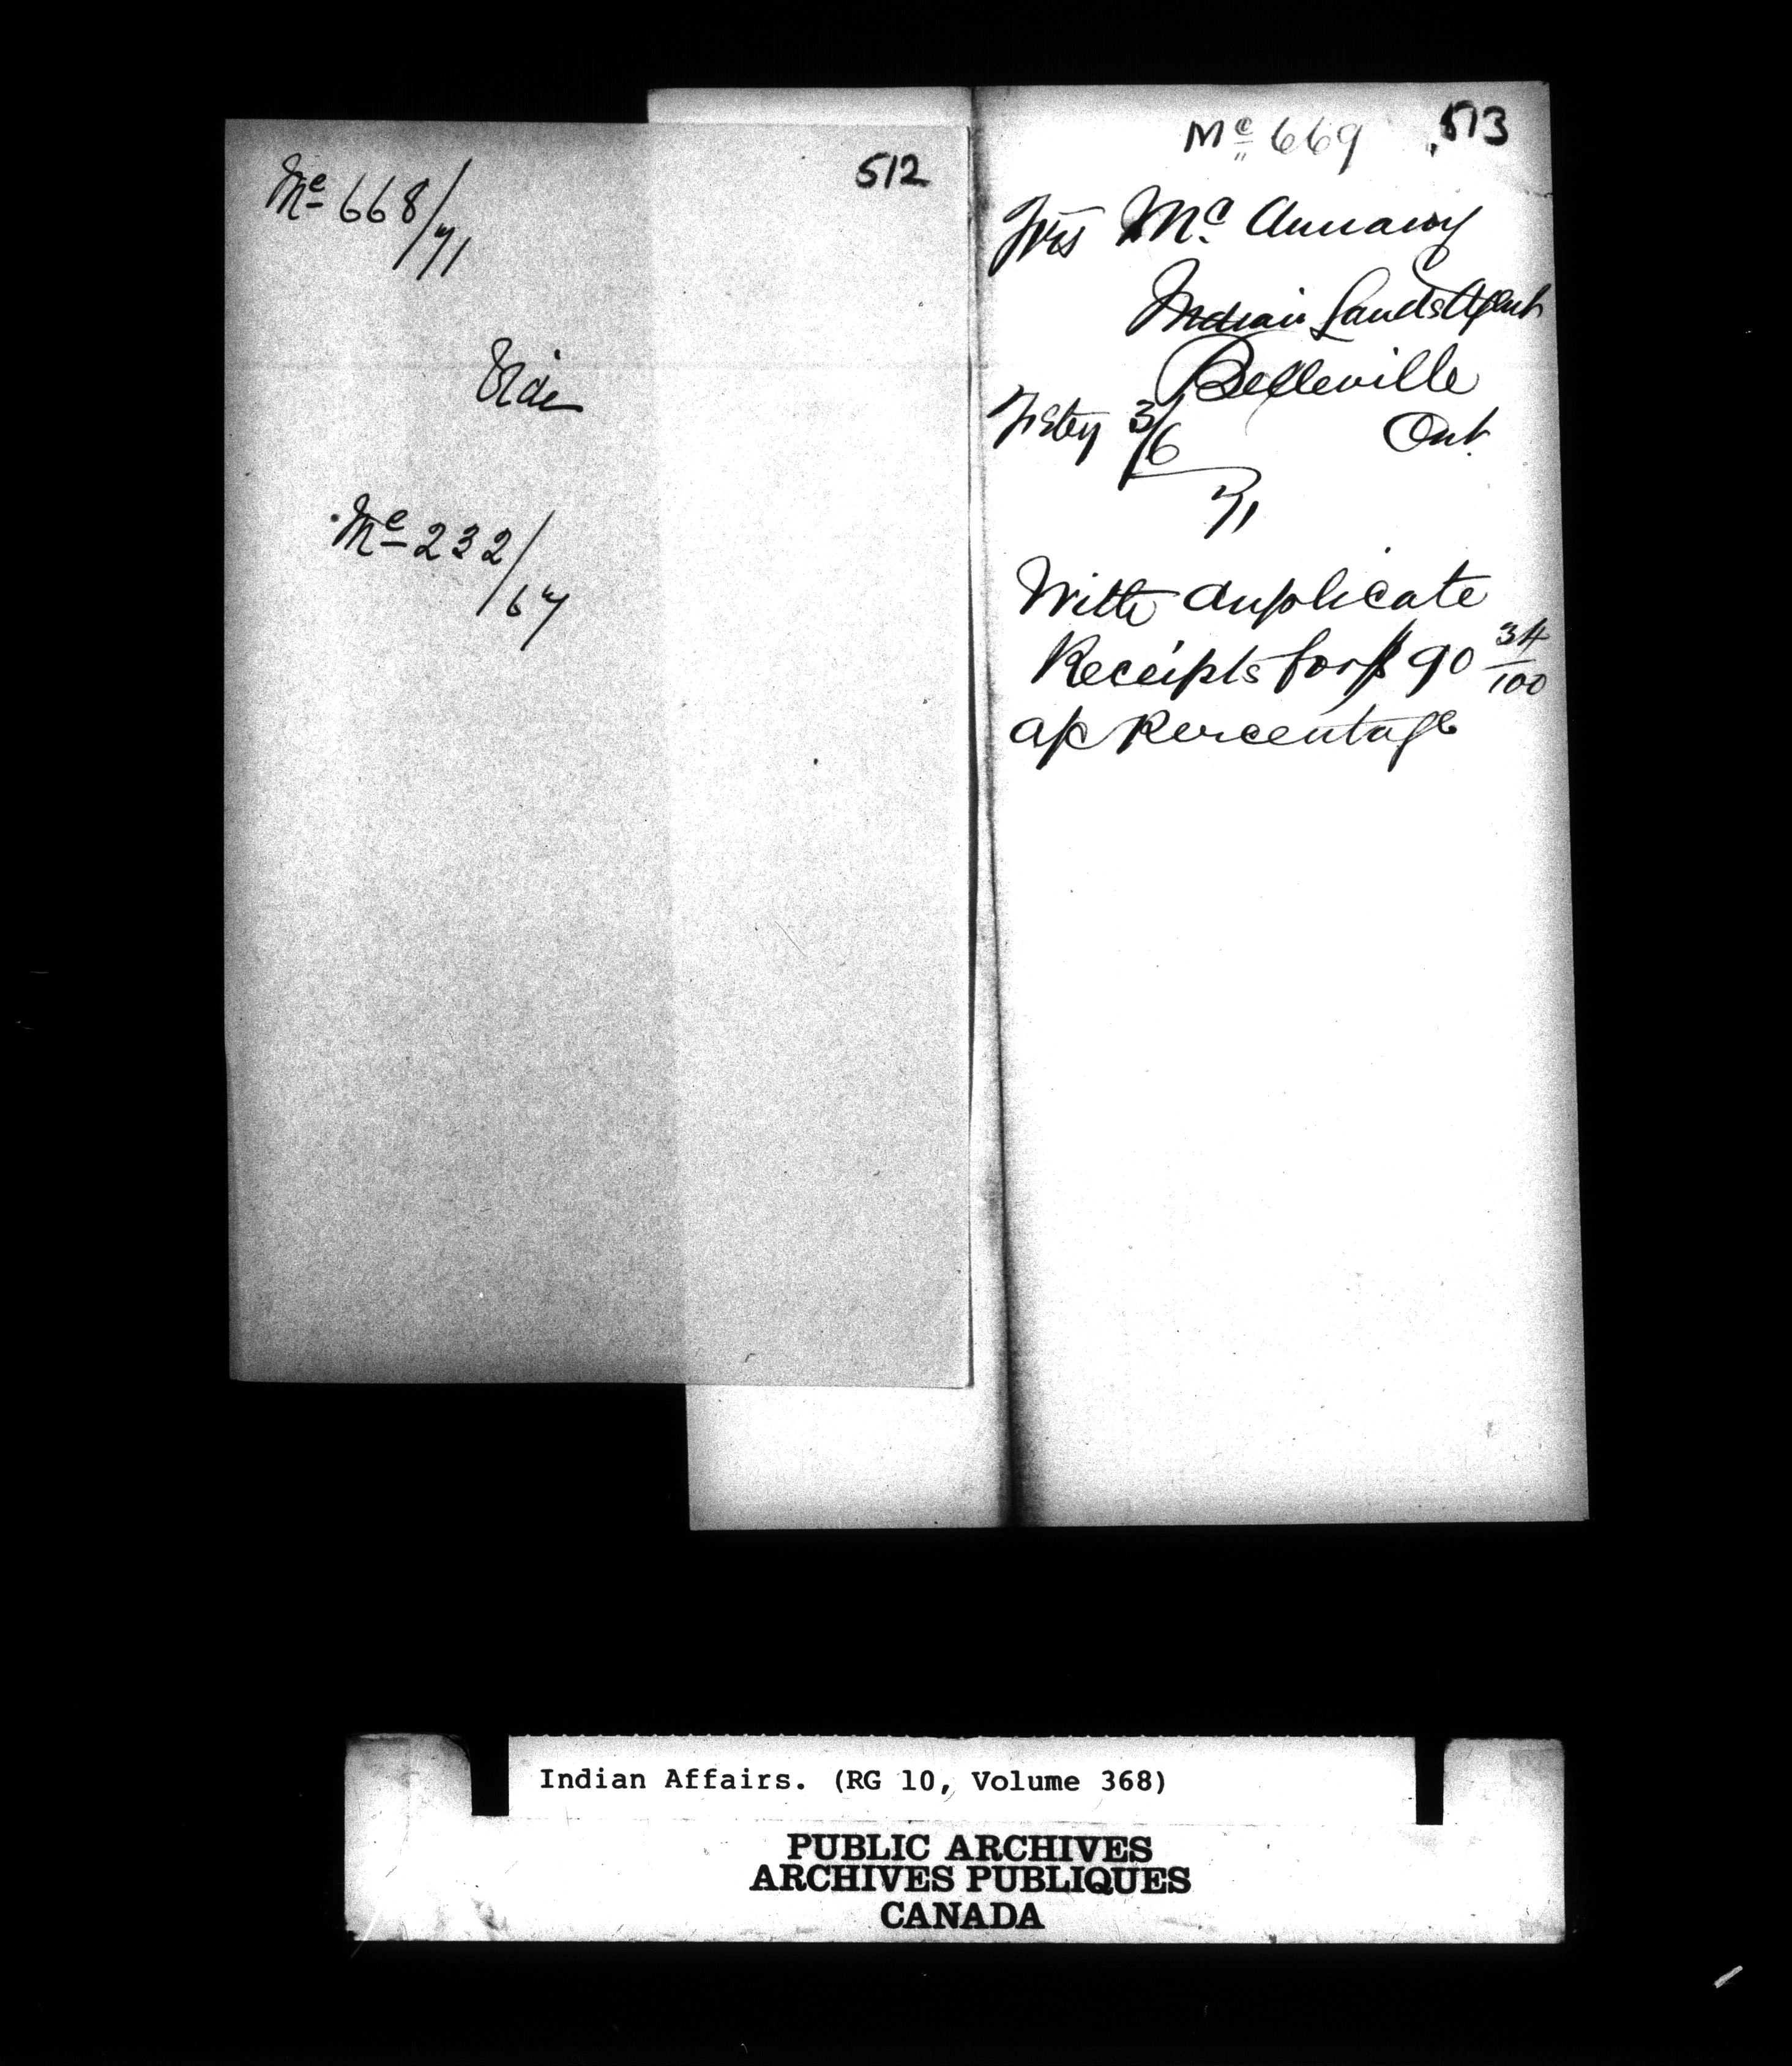 512
Mc 668/71
Vide
Mc 232/67
Mc 669
513
Mc Annany
Indian Lands Agent
Belleville
Ont.
3/6
71
With duplicate
Receipts for $ 90 34/100
a/c Percentage
Indian Affairs. (RG 10, Volume 368)
PUBLIC ARCHIVES
ARCHIVES PUBLIQUES
CANADA